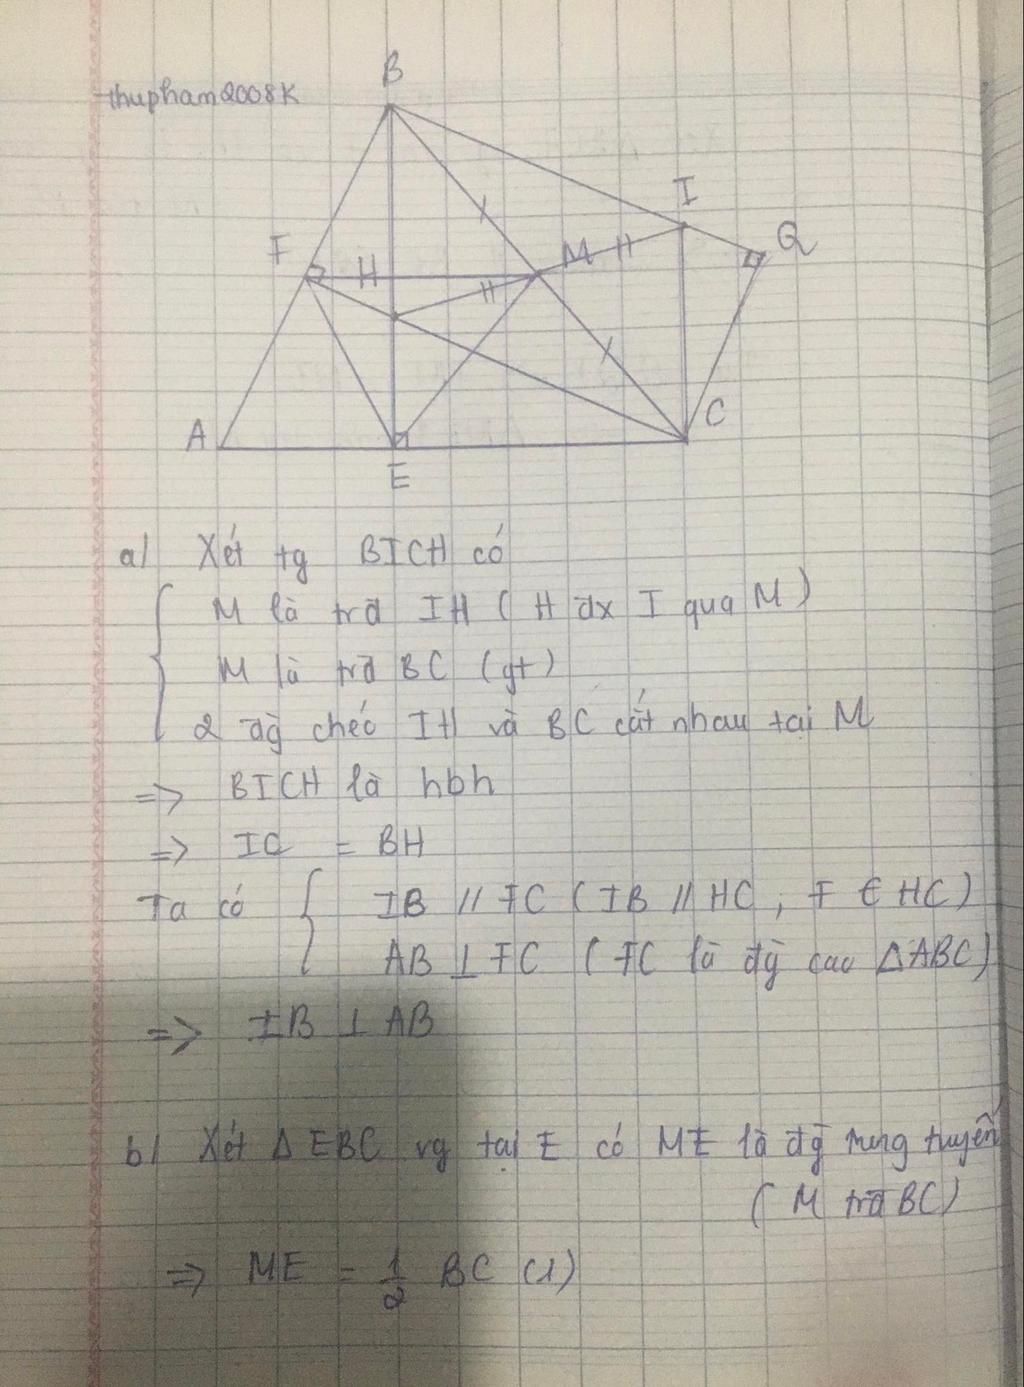 thupham2008K
B
I
Q
F
H
M
A
E
C
a) Xét tg BICH có
M là trđ IH ( H đx I qua M )
M là trđ BC (gt)
2 đg chéo IH và BC cắt nhau tại M
=> BICH là hbh
=> IC = BH
Ta có { IB // FC ( IB // HC , F ∈ HC )
AB ⊥ FC ( FC là đg cao ΔABC)
=> IB ⊥ AB
b) Xét Δ EBC vg tại E có ME là đg trung tuyến
( M trđ BC )
=> ME = 1/2 BC (1)